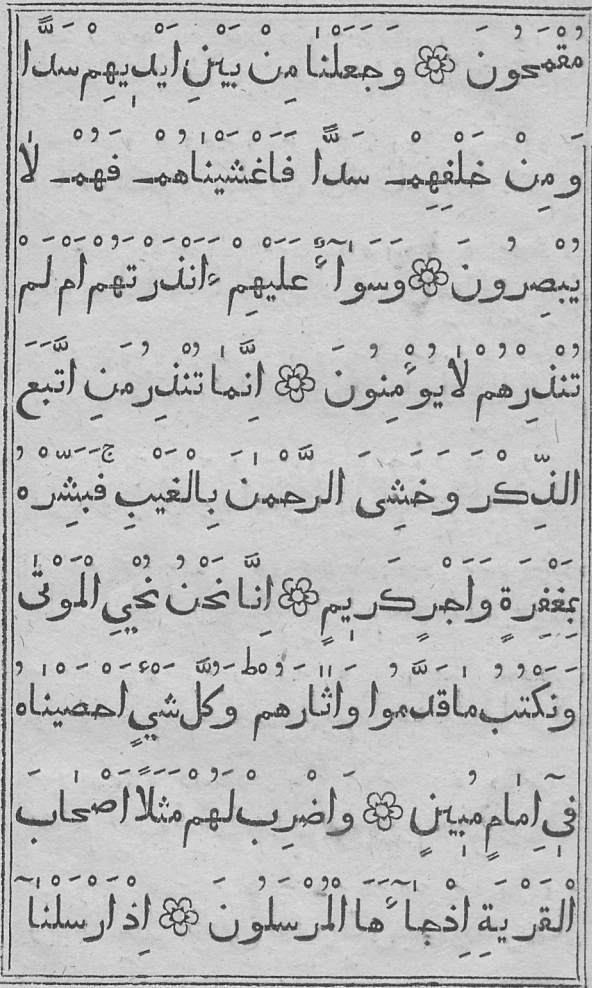 مُقْمَحُونَ ۞ وَجَعَلْنَا مِنْ بَيْنِ اَيْدِيهِمْ سَدًّا
وَمِنْ خَلْفِهِمْ سَدًّا فَاَغْشَيْنَاهُمْ فَهُمْ لَا
يُبْصِرُونَ ۞ وَسَوَآءٌ عَلَيْهِمْ ءَاَنْذَرْتَهُمْ اَمْ لَمْ
تُنْذِرْهُمْ لَا يُؤْمِنُونَ ۞ اِنَّمَا تُنْذِرُ مَنِ اتَّبَعَ
الذِّكْرَ وَخَشِىَ الرَّحْمٰنَ بِالْغَيْبِ ۚ فَبَشِّرْهُ
بِمَغْفِرَةٍ وَاَجْرٍ كَرِيمٍ ۞ اِنَّا نَحْنُ نُحْيِ الْمَوْتٰى
وَنَكْتُبُ مَا قَدَّمُوا وَاٰثَارَهُمْ ؕ وَكُلَّ شَيْءٍ اَحْصَيْنَاهُ
فِىٓ اِمَامٍ مُبِينٍ ۞ وَاضْرِبْ لَهُمْ مَثَلًا اَصْحَابَ
الْقَرْيَةِ اِذْ جَآءَهَا الْمُرْسَلُونَ ۞ اِذْ اَرْسَلْنَآ